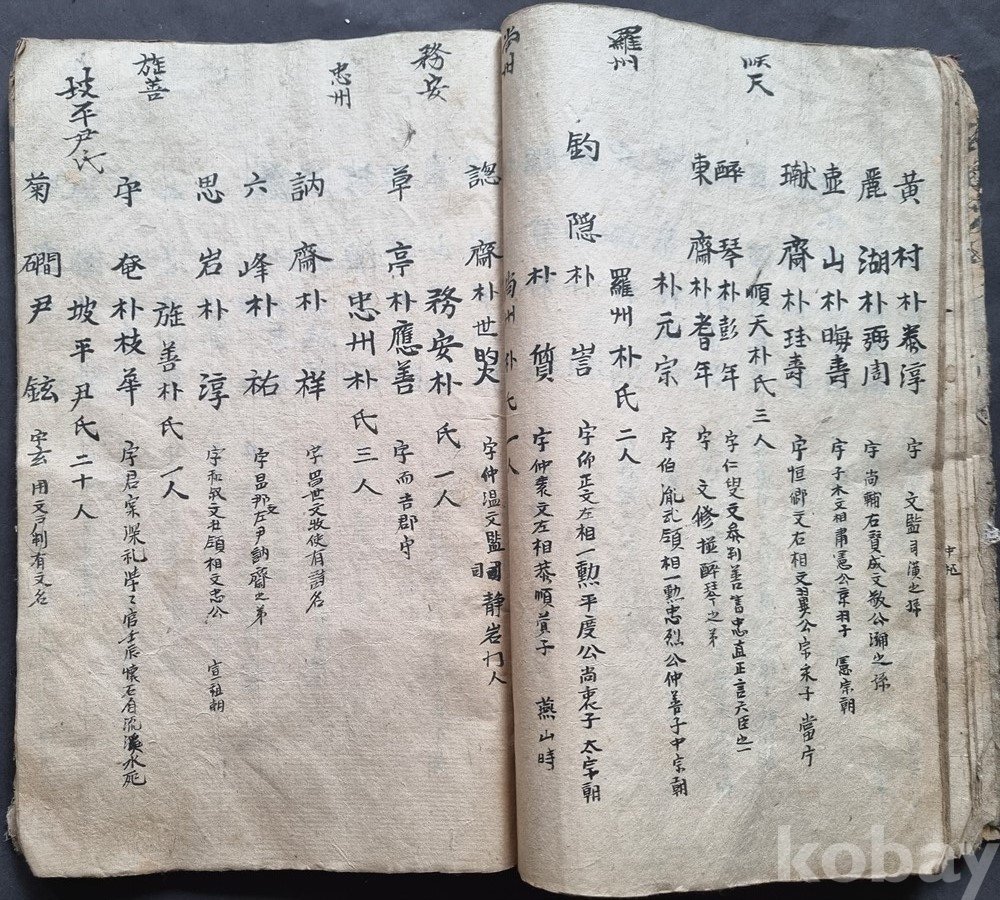 黃村朴泰淳 字 文監司潢之孫
麗湖朴弼周 字尚輔右賛成文敬公瀰之孫
壺山朴晦壽 字子木文相肅憲公京羽子 憲宗朝
瓛齋朴珪壽 字恒卿文右相文翼公宗永子 當宁
順天
順天朴氏三人
醉琴朴彭年 字仁叟文泰判善書忠直正言六臣之一
東齋朴耆年 字 文修撰醉琴之弟
朴元宗 字伯胤武領相一勳忠烈公仲善子中宗朝
羅州
羅州朴氏二人
釣隱朴訔 字仰正文左相一勳平度公尚衷子太宗朝
朴質 字仲 文左相恭順 子 燕山時
尚州
尚州朴氏一人
諰齋朴世熒 字仲温文監司静岩門人
務安
務安朴氏一人
草亭朴應善 字而吉郡守
忠州
忠州朴氏三人
訥齋朴祥 字昌世文牧使有詩名
六峰朴祐 字昌邦文左尹訥齋之弟
思岩朴淳 字和叔文壯領相文忠公 宣祖朝
旌善
旌善朴氏一人
守庵朴枝華 字君宗深礼學之官壬辰懷石自沉溪水死
坡平尹氏
坡平尹氏二十人
菊磵尹鉉 字 用文戶判有文名
kobay